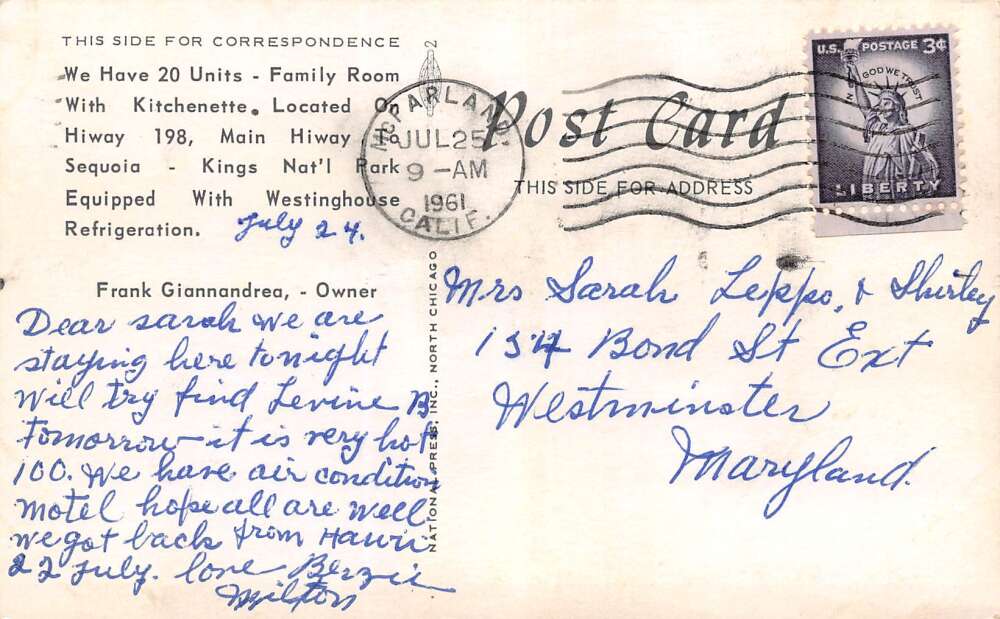 THIS SIDE FOR CORRESPONDENCE
We Have 20 Units - Family Room
With Kitchenette. Located On
Hiway 198, Main Hiway To
Sequoia - Kings Nat'l Park
Equipped With Westinghouse
Refrigeration.
July 24.
Frank Giannandrea, - Owner
Dear Sarah we are
staying here tonight
will try find Levine B
tomorrow - it is very hot
100. We have air condition
motel hope all are well
we got back from Hawii
22 July. love
Milton
2
NATIONAL PRESS, INC., NORTH CHICAGO
McFARLAND
JUL 25
9 -AM
1961
CALIF.
Post Card
THIS SIDE FOR ADDRESS
U.S. POSTAGE 3¢
IN GOD WE TRUST
LIBERTY
Mrs Sarah Leppo, & Shirley
154 Bond St Ext
Westminster
Maryland.